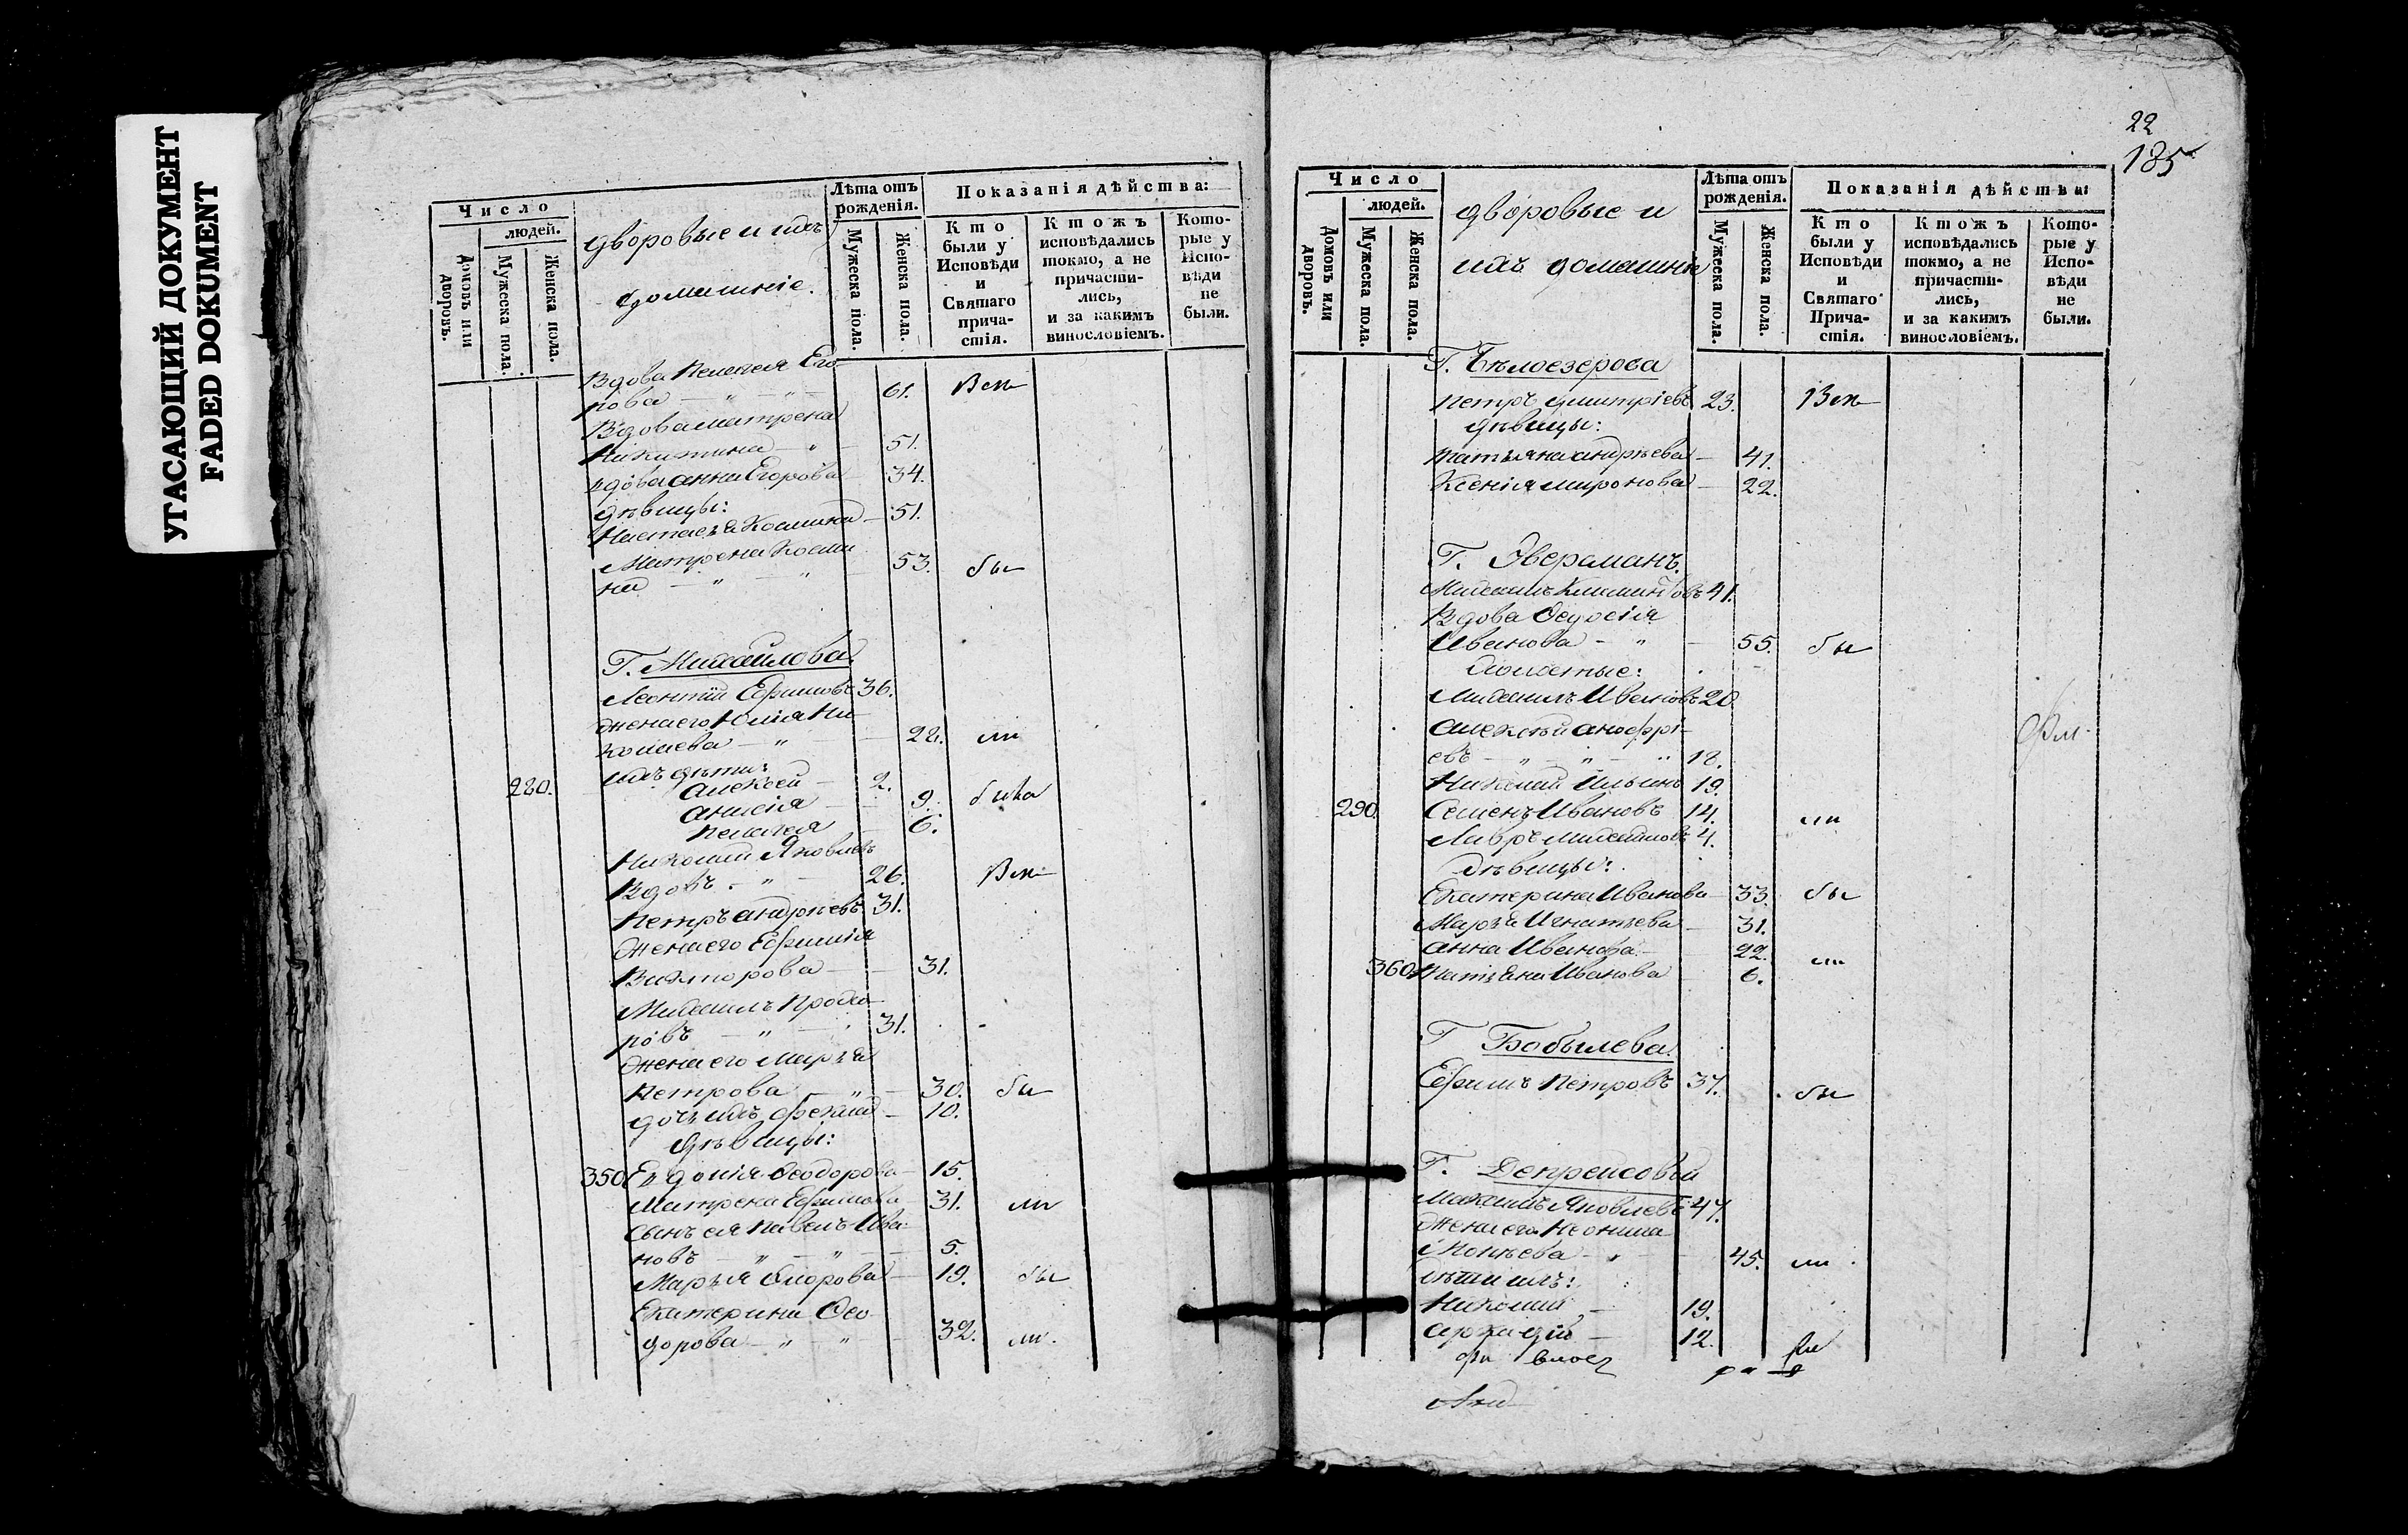 УГАСАЮЩИЙ ДОКУМЕНТ
FADED DOKUMENT
Число
людей.
Домовъ или дворовъ.
Мужеска пола.
Женска пола.
дворовые и ихъ
домашніе.
Лѣта отъ рожденія.
Мужеска пола.
Женска пола.
Показанія дѣйства:
Кто были у Исповѣди и Святаго прича-стія.
Ктожъ исповѣдались токмо, а не причасти-лись, и за какимъ винословіемъ.
Кото-рые у Испо-вѣди не были.
Вдова Пелагея Его-
рова — " — " — 61.
Вдова Матрена
Никитина — " — 51.
вдова Анна Егорова — 34.
дѣвицы:
Настасья Космина — 51.
Матрена Косми
на — " — " 53. бы
Г. Михайлова
Леонтій Ефимовъ 36.
жена его Юлія Ни-
колаева — " — 22. ли
ихъ дѣти:
280. Алексѣй — 2.
Анисія — 9.
Пелагея — 6.
Николай Яковлевъ
Вдовъ. — " — 26.
Петръ Андреевъ 31.
жена его Ефимія
Викторова — 31.
Михаилъ Прохо-
ровъ — " — 31.
жена его Марья
Петрова — " — 30. бы
дочь ихъ Фекла — 10.
дѣвицы:
350 Евдокія Феодорова — 15.
Матрена Ефимова 31. ли
сынъ ея Павелъ Ива-
новъ — " — " — 5.
Марья Егорова — 19. бы
Екатерина Фео
дорова — " — " 32. ли.
22
185
Число
людей.
Домовъ или дворовъ.
Мужеска пола.
Женска пола.
дворовые и
ихъ домашніе
Лѣта отъ рожденія.
Мужеска пола.
Женска пола.
Показанія дѣйства:
Кто были у Исповѣди и Святаго Прича-стія.
Ктожъ исповѣдались токмо, а не причасти-лись, и за какимъ винословіемъ.
Кото-рые у Испо-вѣди не были.
Г. Бѣлоезерова
Петръ Димитріевъ 23.
дѣвицы:
Татьяна Андреева — 41.
Ксенія Миронова — 22.
Г. Эверсманъ.
Михаилъ 41.
Вдова Федосія
Иванова — " — 55. бы
Холостые:
Михаилъ Ивановъ 20
Алексѣй Анофрі-
евъ — " — " — " 18.
Николай Ильинъ 19.
290 Семенъ Ивановъ 14. ли
Лавръ Михайловъ 4.
Дѣвицы:
Екатерина Иванова — 33. бы
Марья Игнатьева — 31.
Анна Иванова — 22.
360 Татьяна Иванова 6. ли
Г Бобылева.
Ефимъ Петровъ 37. бы
Г. Депрейсовой
Максимъ Яковлевъ 47.
жена его Неонила
45. ли
дѣти ихъ:
Николай — 19.
Аркадій — 12.